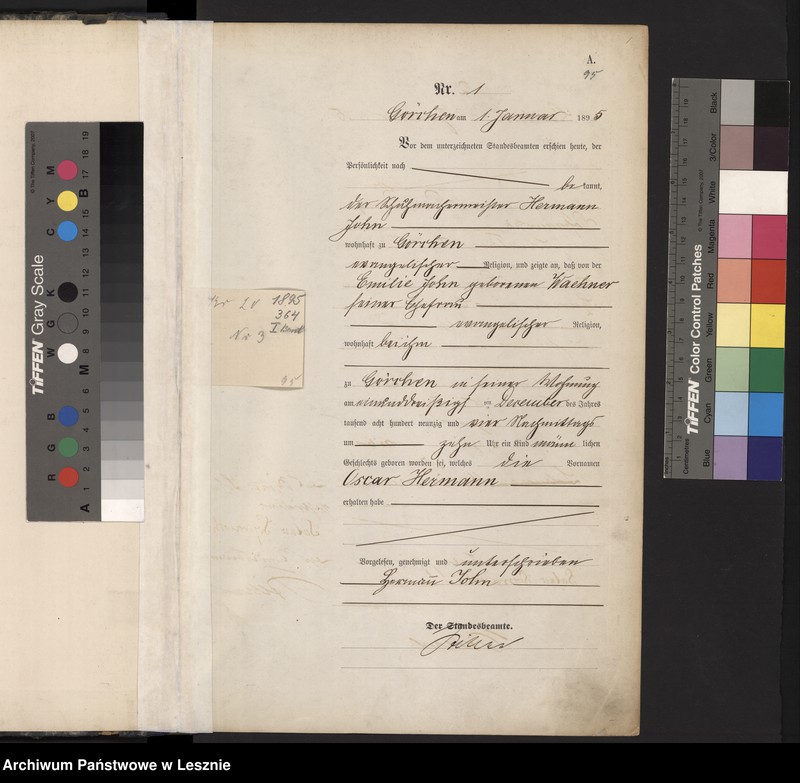 A.
95
Nr. 1
Görchen am 1. Januar 1895
Vor dem unterzeichneten Standesbeamten erschien heute, der
Persönlichkeit nach
bekannt,
der Schuhmachermeister Hermann
John
wohnhaft zu Görchen
evangelischer Religion, und zeigte an, daß von der
Emilie John geborenen Waehner
seiner Ehefrau
evangelischer Religion,
wohnhaft bei ihm
zu Görchen in seiner Wohnung
am einunddreißigst en December des Jahres
tausend acht hundert neunzig und vier Nachmittags
um zehn Uhr ein Kind männlichen
Geschlechts geboren worden sei, welches die Vornamen
Oscar Hermann
erhalten habe
Vorgelesen, genehmigt und unterschrieben
Hermann John
Der Standesbeamte.
1895
364
Nr 3
95
© The Tiffen Company, 2007
TIFFEN Gray Scale
R G B W G K C Y M
A 1 2 3 4 5 6 M 8 9 10 11 12 13 14 15 B 17 18 19
TIFFEN Color Control Patches
© The Tiffen Company, 2007
Centimetres
Inches
Blue Cyan Green Yellow Red Magenta White 3/Color Black
Archiwum Państwowe w Lesznie